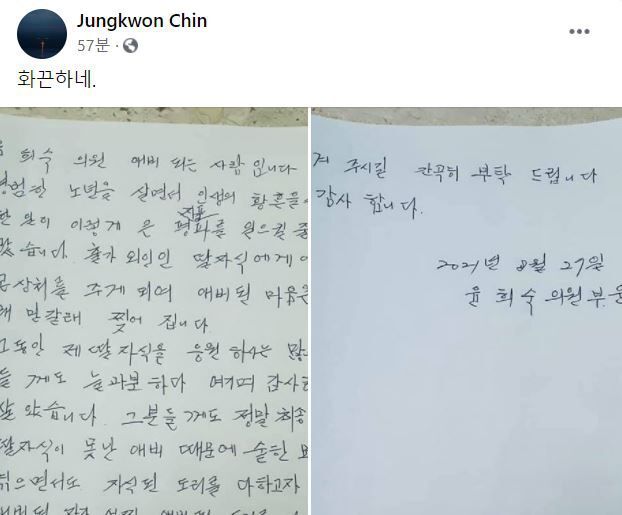 Jungkwon Chin
57분
화끈하네.
희숙 의원 애비 되는 사람 입니다
평범한 노년을 살면서 인생의 황혼을
한 일이 이렇게 큰 평파를 일으킬 줄
지표
랐습니다. 출가 외인인 딸자식에게
상처를 주게 되여 애비된 마음은
만갈래 찢어 집니다.
그동안 제 딸자식을 응원 하시는 많
들 께도 늘 과분하다 여기며 감사
살았습니다. 그분들 께도 정말 죄송
딸자식이 못난 애비 때문에 숱한
겪으면서도 자식된 도리를 다하고자
져 주시길 간곡히 부탁 드립니다
감사 합니다.
2021년 8월 27일
윤희숙 의원 부